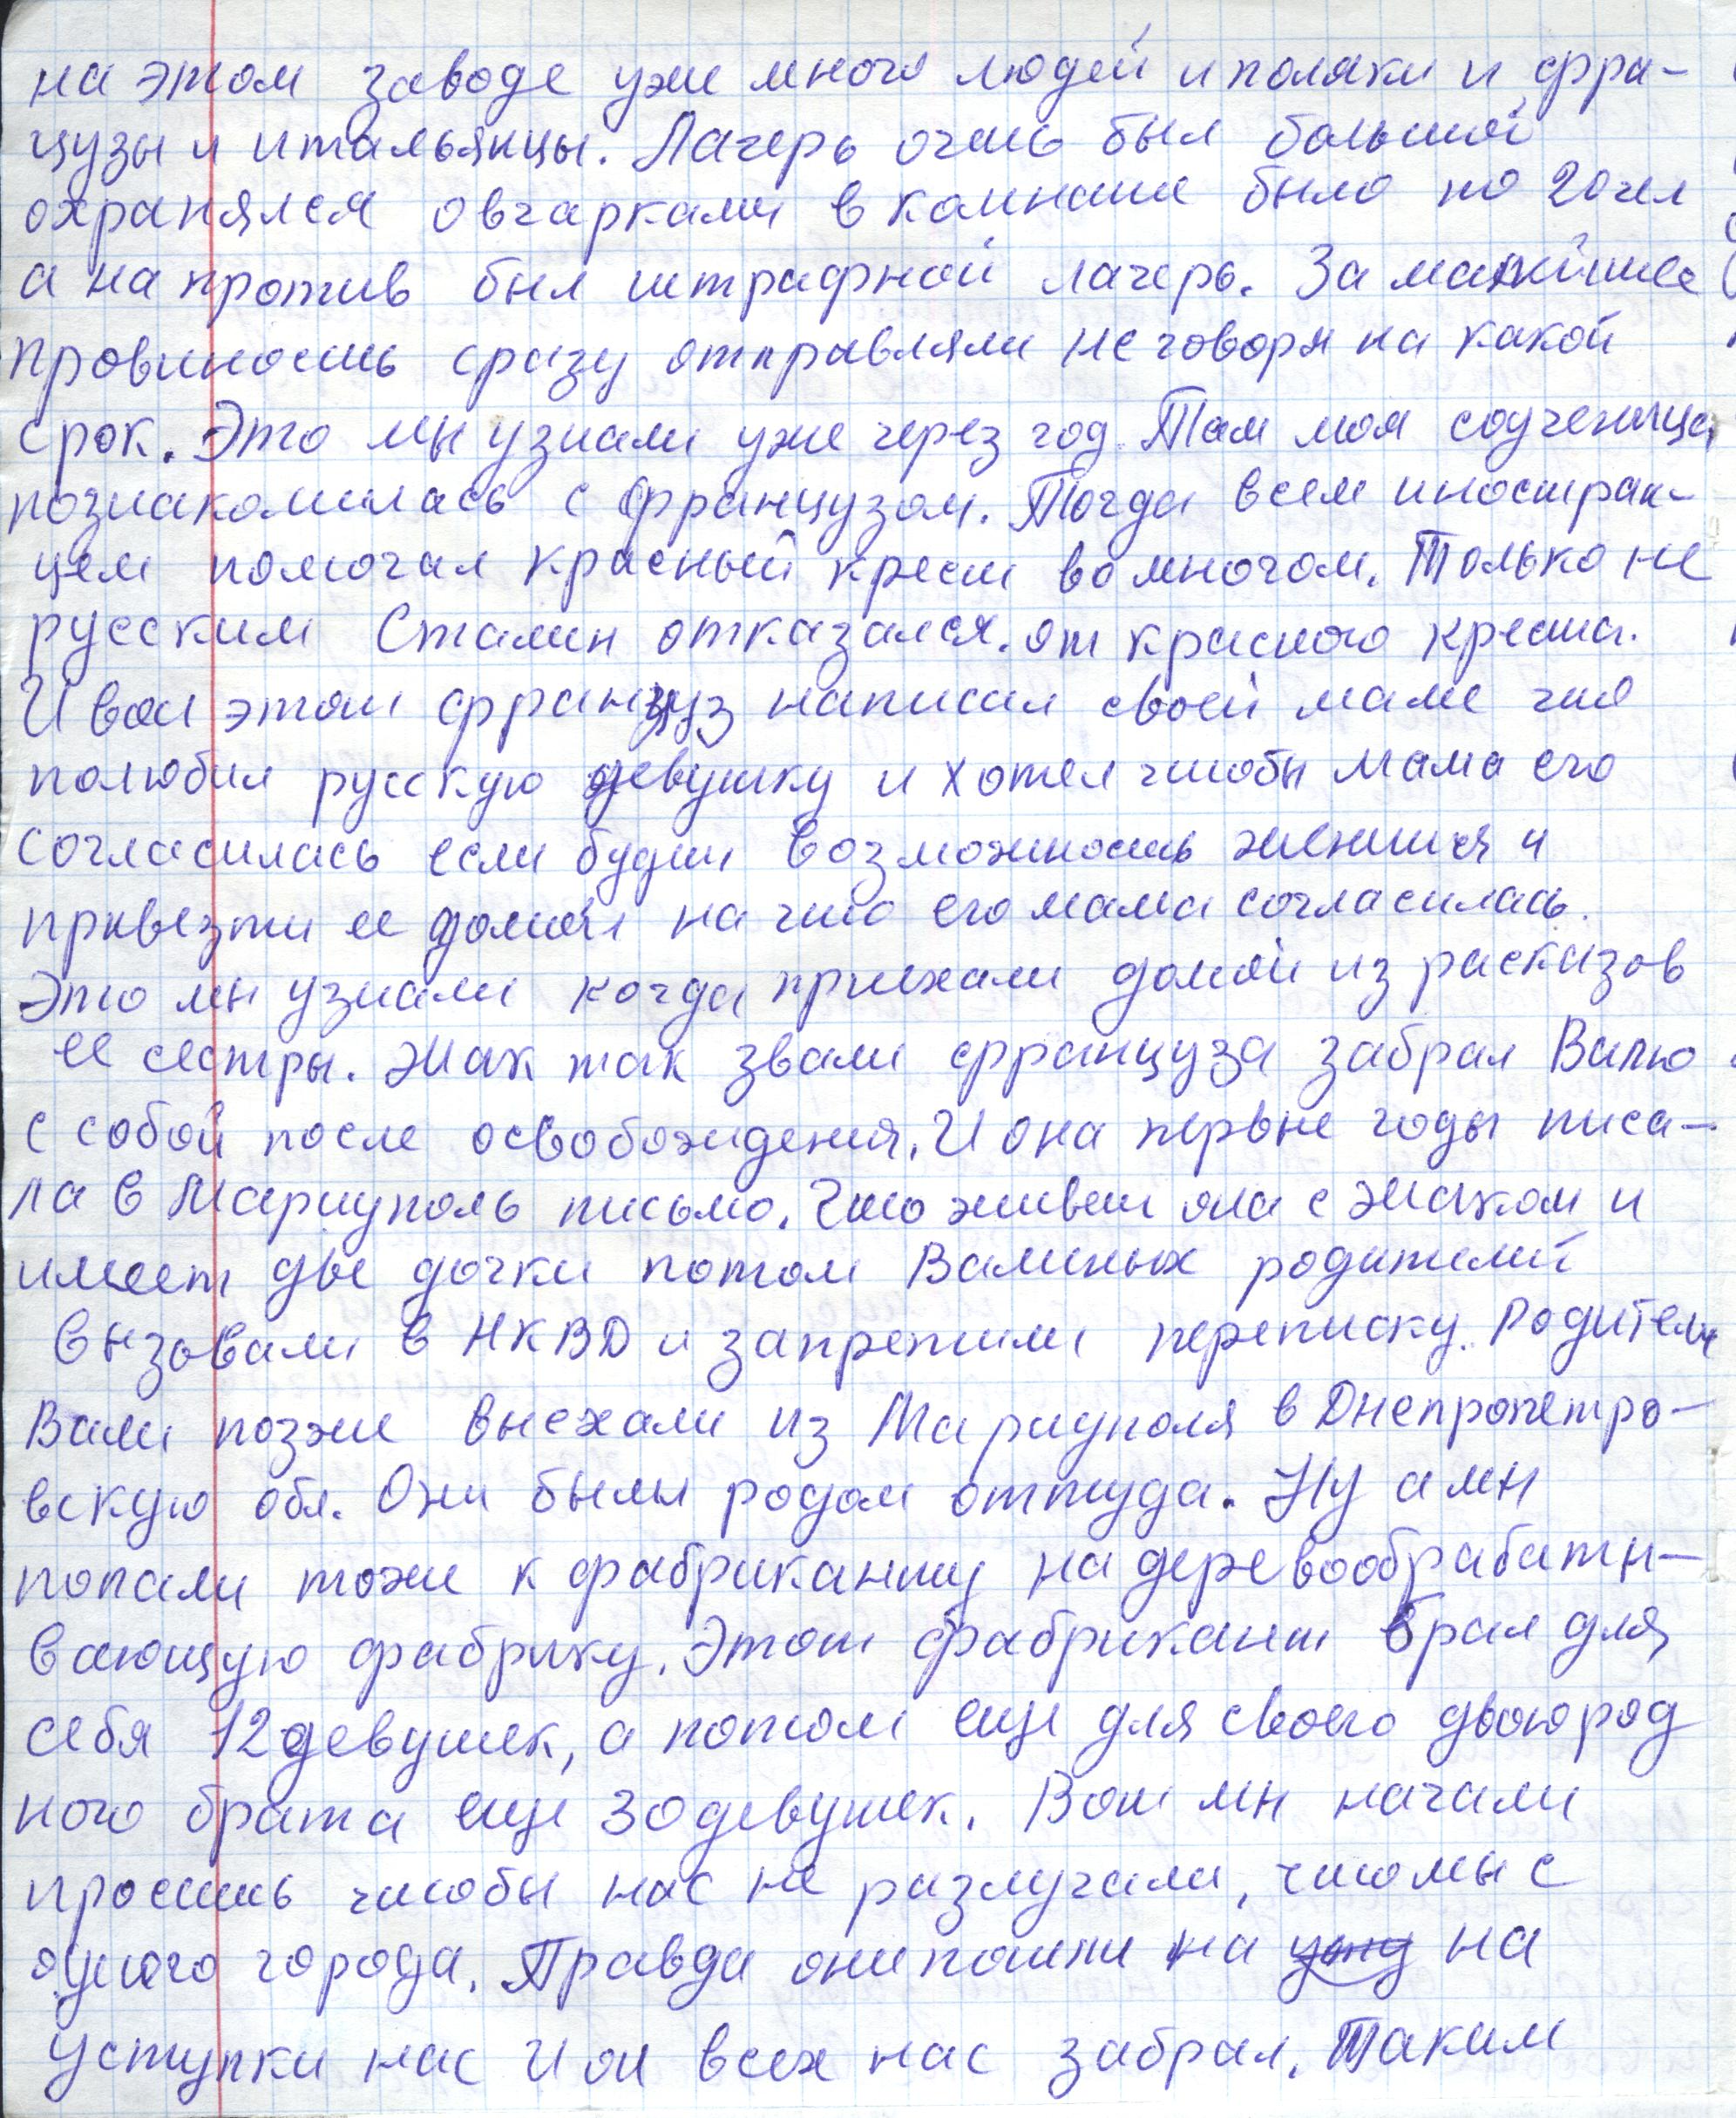 на этом заводе уже много людей и поляки и фра-
цузы и итальянцы. Лагерь очень был большой
охранялся овчарками в комнате было по 20 чел
а на против был штрафной лагерь. За малейшее
провиность сразу отправляли не говоря на какой
срок. Это мы узнали уже через год. Там моя соученица
познакомилась с французом. Тогда всем иностран-
цем помогал красный крест во многом. Только не
русским Сталин отказался. от красного креста.
И вот этот француз написал своей маме что
полюбил русскую девушку и хотел чтобы мама его
согласилась если будет возможность женится и
привезти ее домой на что его мама согласилась.
Это мы узнали когда приехали домой из расказов
ее сестры. Жак так звали француза забрал Валю
с собой после освобождения. И она первые годы писа-
ла в Мариуполь письмо. Что живет она с Жаком и
имеет две дочки потом Валиных родителей
вызвали в НКВД и запретили переписку. Родители
Вали позже выехали из Мариуполя в Днепропетро-
вскую обл. Они были родом оттуда. Ну а мы
попали тоже к фабриканту на деревообрабаты-
вающую фабрику. Этот фабрикант брал для
себя 12 девушек, а потом еще для своего двоюрод
ного брата еще 30 девушек. Вот мы начали
просить чтобы нас не разлучали, что мы с
одного города. Правда они пошли на на
уступки нас И он всех нас забрал. Таким